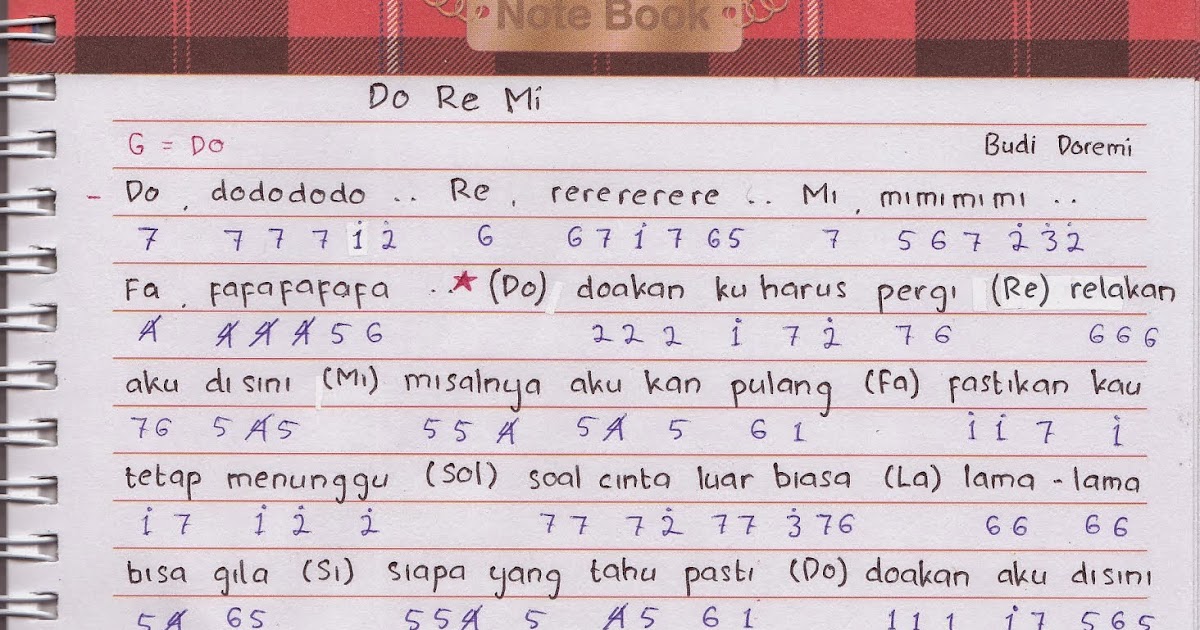 Note Book
Do Re Mi
G = Do Budi Doremi
- Do, dodododo .. Re, rererererere .. Mi, mimimimi ..
7 7 7 7 1̇ 2̇ 6 6 7 1̇ 7 6 5 7 5 6 7 2̇ 3̇ 2̇
Fa, fafafafafa ..★ (Do) doakan ku harus pergi (Re) relakan
4̸ 4̸ 4̸ 4̸ 5 6 2 2 2 1̇ 7 2̇ 7 6 6 6 6
aku disini (Mi) misalnya aku kan pulang (Fa) fastikan kau
7 6 5 4̸ 5 5 5 4̸ 5 4̸ 5 6 1 1̇ 1̇ 7 1̇
tetap menunggu (Sol) soal cinta luar biasa (La) lama - lama
1̇ 7 1̇ 2̇ 2̇ 7 7 7 2̇ 7 7 3̇ 7 6 6 6 6 6
bisa gila (Si) siapa yang tahu pasti (Do) doakan aku disini
5 4̸ 6 5 5 5 4̸ 5 4̸ 5 6 1 1 1 1 1̇ 7 5 6 5